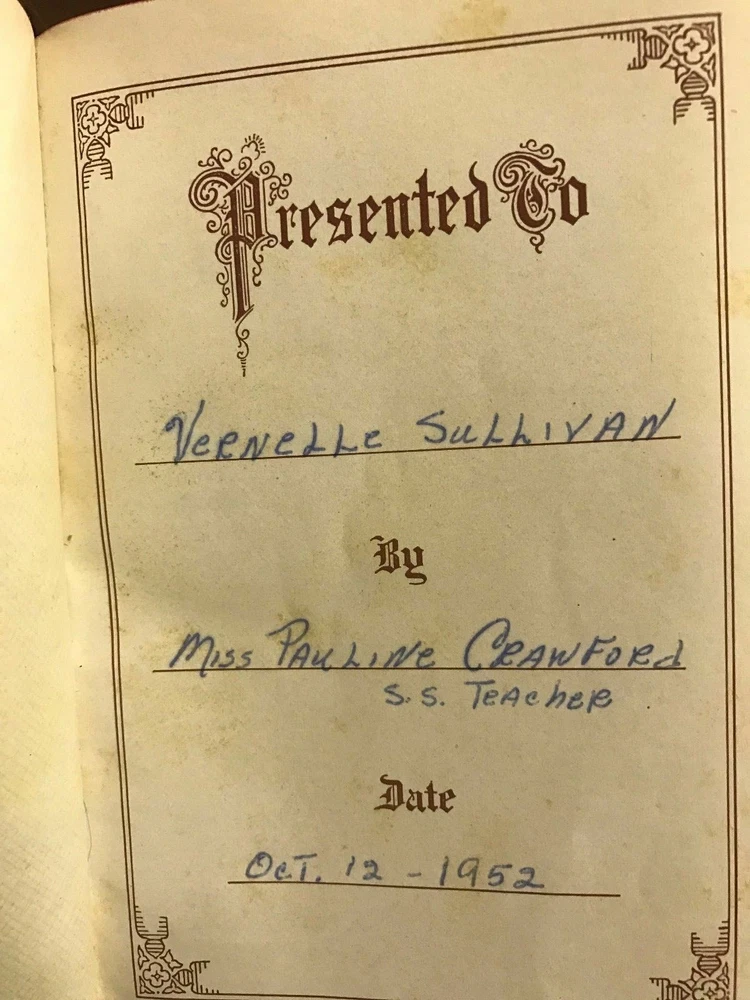 Presented To
Vernelle Sullivan
By
Miss Pauline Crawford
S.S. Teacher
Date
Oct. 12 - 1952